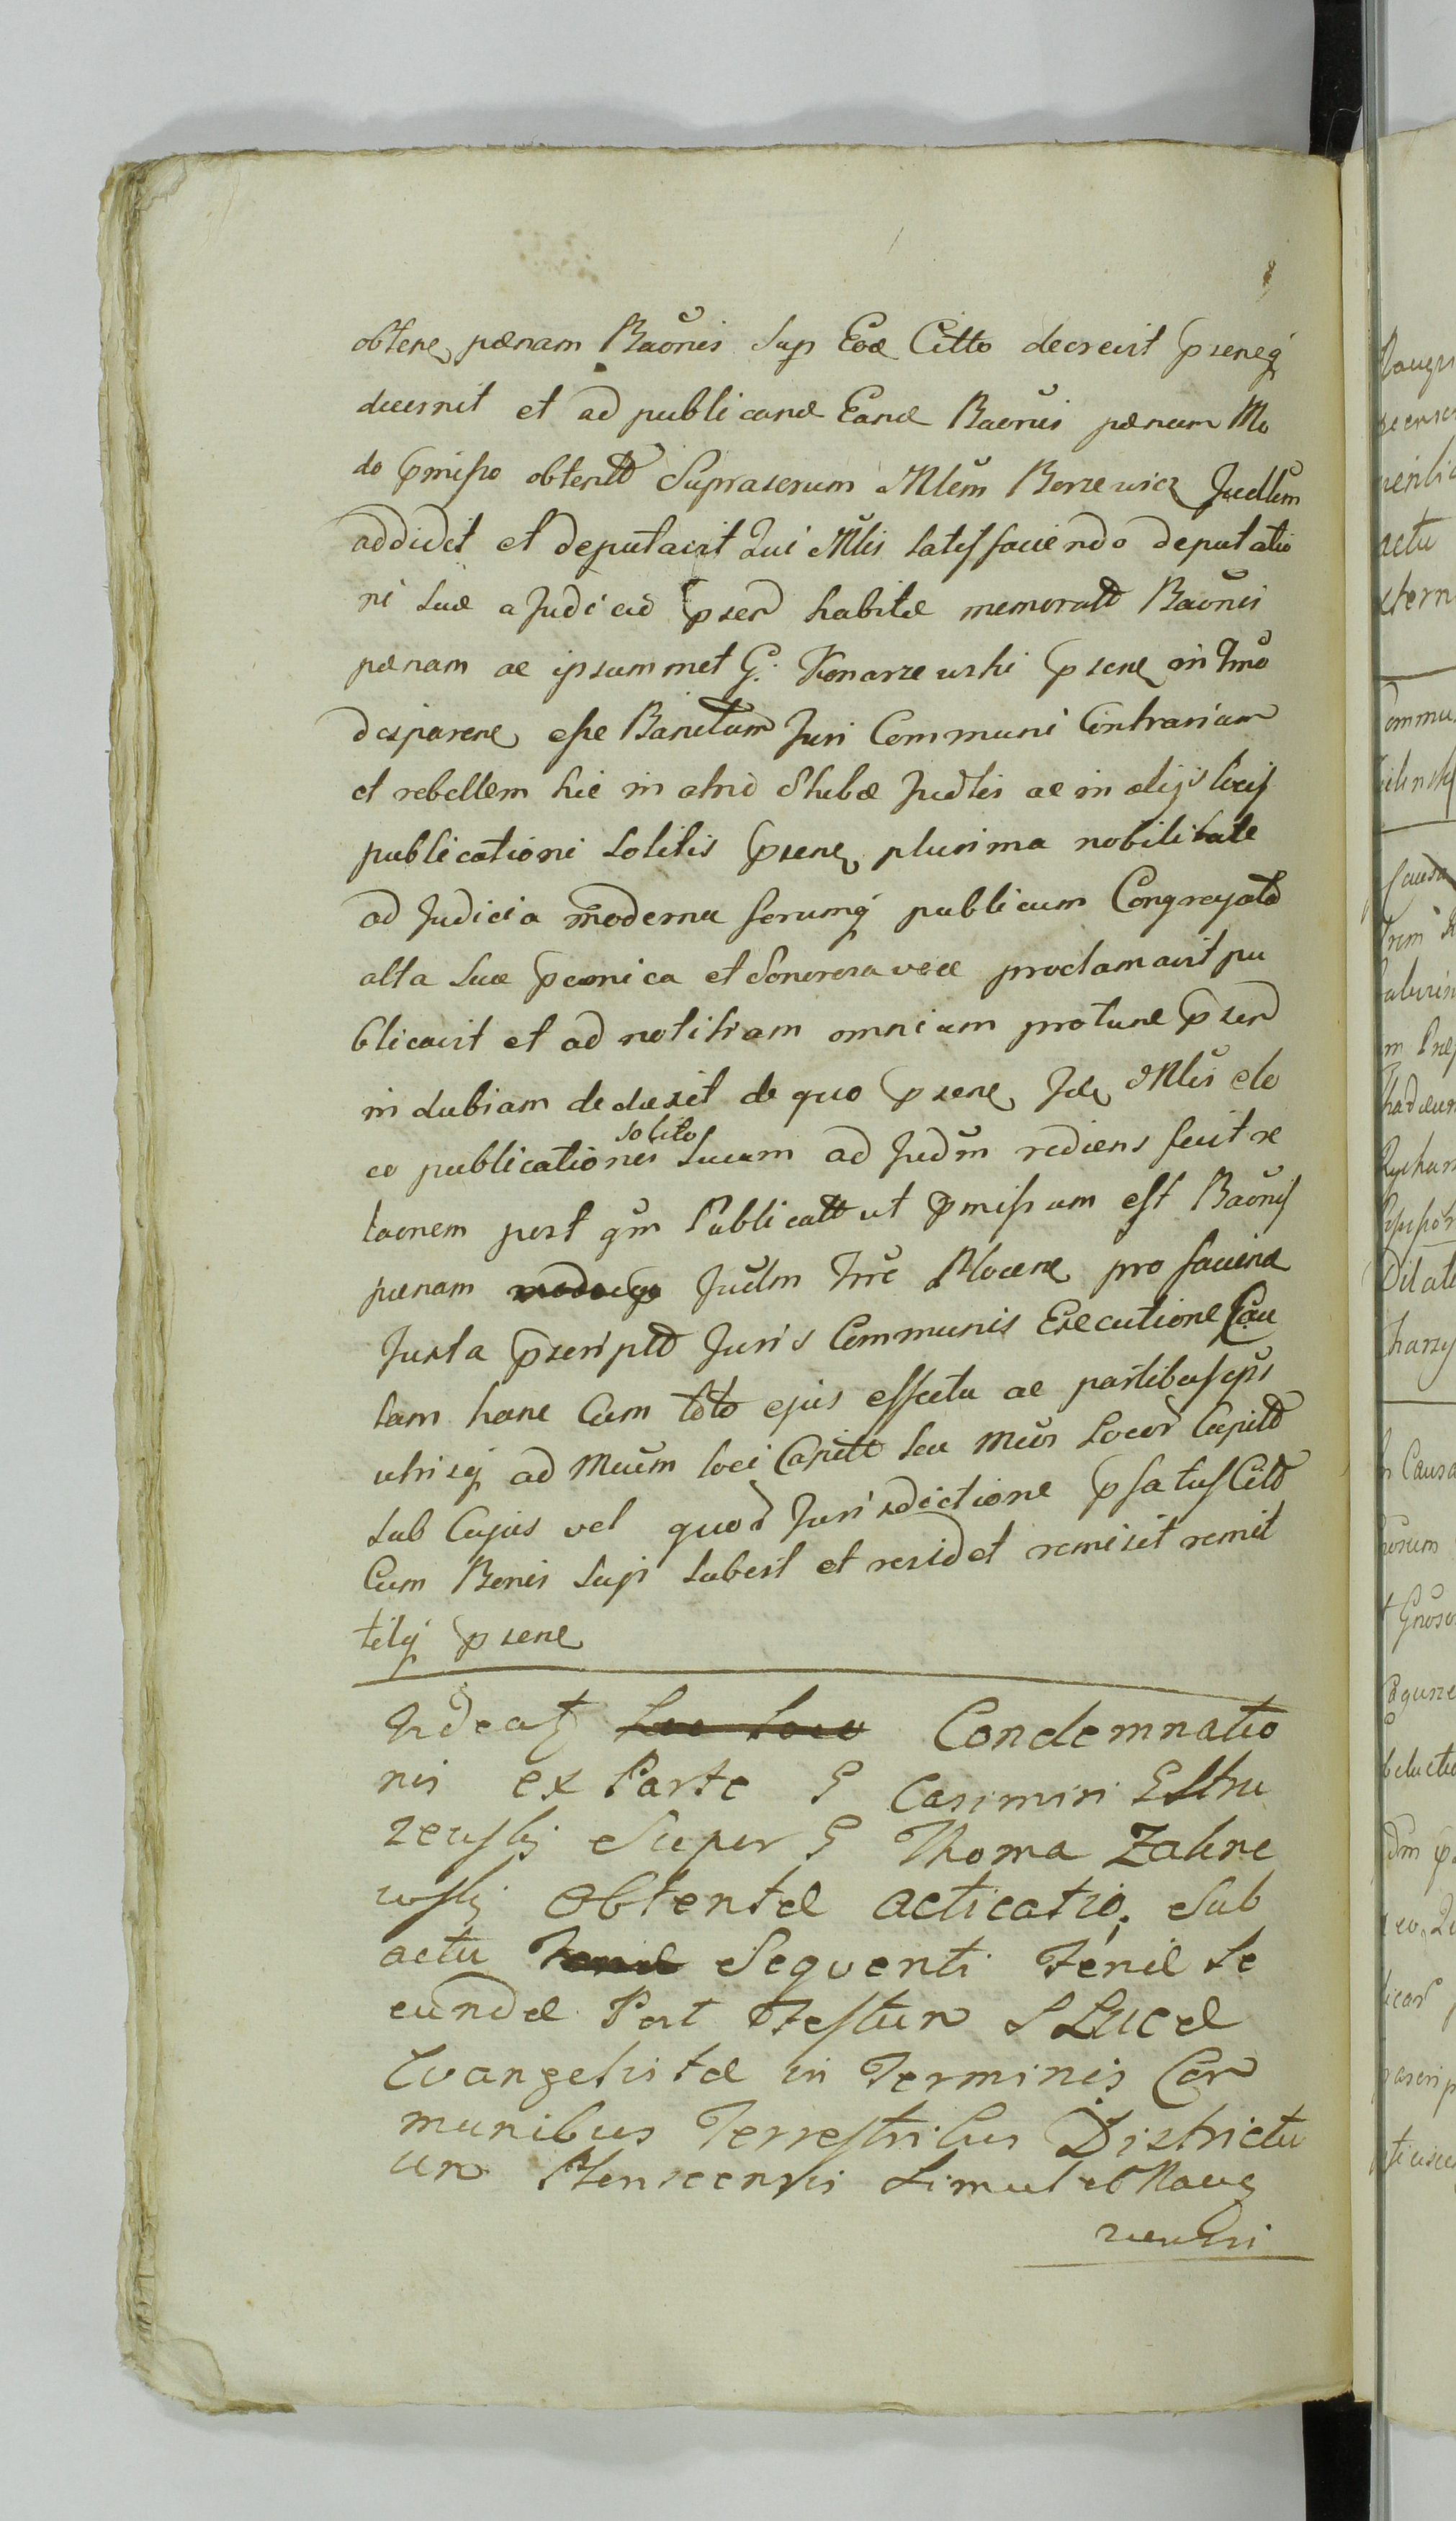 obtene pænam Baonis sup Eode Citto decrevit pseneq
decernit et ad publicand Eand Baonis pænam Mo
do pmisso obtentt Suprascrum Mlem Borzewicz Judlem
addidit et deputavit Qui Mlis satisfaciendo deputatio
ni suæ a Judicio psen habitæ memoratt Baonis
pænam ac ipsummet G. Konarzewski psene in Tmo
disparene esse Banitum Juri Communi Contrarium
et rebellem hic in atrio Stubæ Judlis ac in alijs locis
publicationi solitis psene plurima nobilitate
ad Judicia moderna forumq publicum Congregata
alta sua pconica et Sonorosa voce proclamavit pu
blicavit et ad notitiam omnium protunc psen
indubiam deduxit de quo psene Ide Mlis de
eo publicationis solito Locum ad Judm rediens fecit re
laonem post qm Publicatt ut pmissum est Baonis
pænam Judm Trre Plocene pro faciend
Juxta pscriptt Juris Communis Executione Cau
sam hanc Cum toto ejus effectu ac partibus ejus
utrisq ad Meum loci Capitt seu Meos Locor Capitt
sub Cujus vel quor Jurisdictione psatus Citt
Cum Bonis suis subest et residet remisit remit
titq psene
Videat Condemnatio
nis ex Parte G Casimiri
Super G Thoma Zakrze
wskj Obtentæ acticatio, Sub
actu Sequenti Feriæ Se
cundæ Post Festum S Lucæ
Evangelistæ in Terminis Com
munibus Terrestribus Districtu
um Plonscensis Simul et Raug
ziensi